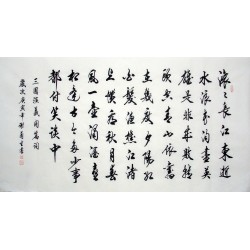 滚滚长江东逝
水浪花淘尽英
雄是非成败转
头空青山依旧
在几度夕阳红
白发渔樵江渚
上惯看秋月春
风一壶浊酒喜
相逢古今多少事
都付笑谈中
三国演义开篇词